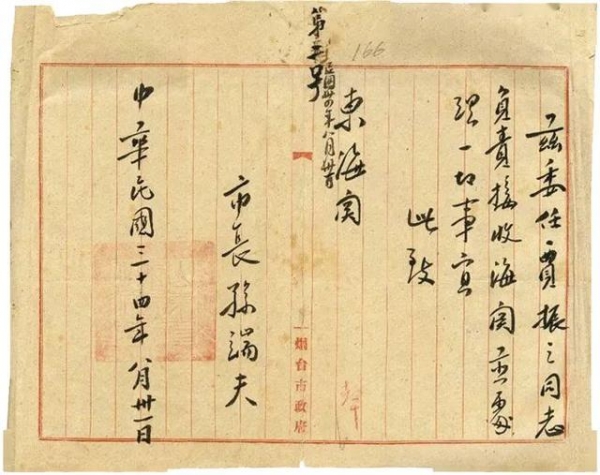 茲委任賈振之同志
負責接收海関並處
理一切事宜
此致
東海関
166
第号
民國卅四年八月卅
烟台市政府
市長孫端夫
中華民國三十四年八月卅一日